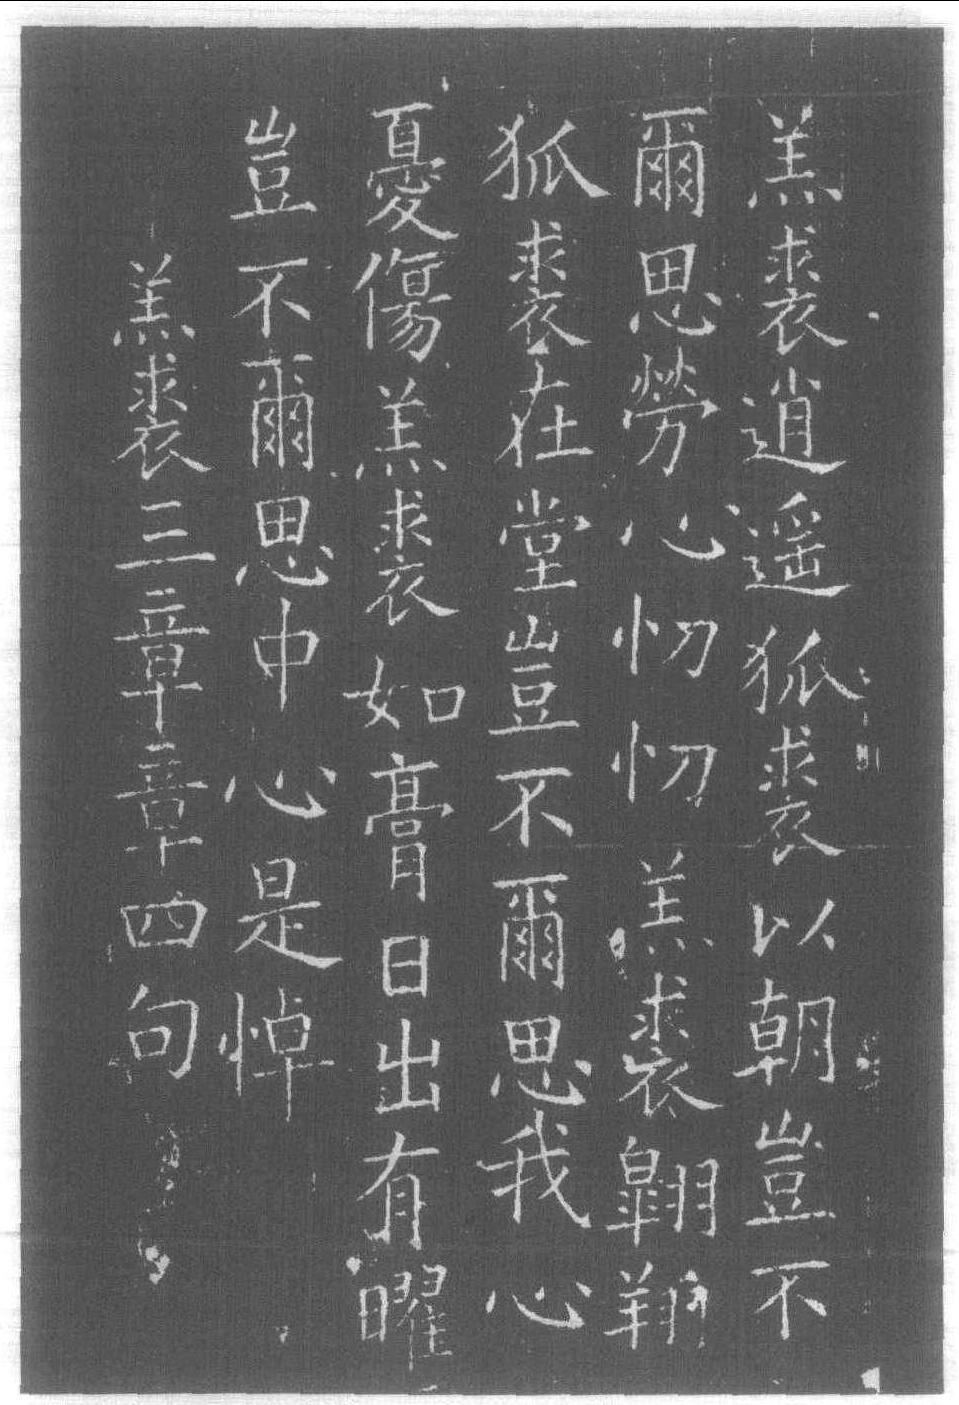 羔裘逍遥狐裘以朝豈不
爾思勞心忉忉羔裘翺翔
狐裘在堂豈不爾思我心
憂傷羔裘如膏日出有曜
豈不爾思中心是悼
羔裘三章章四句